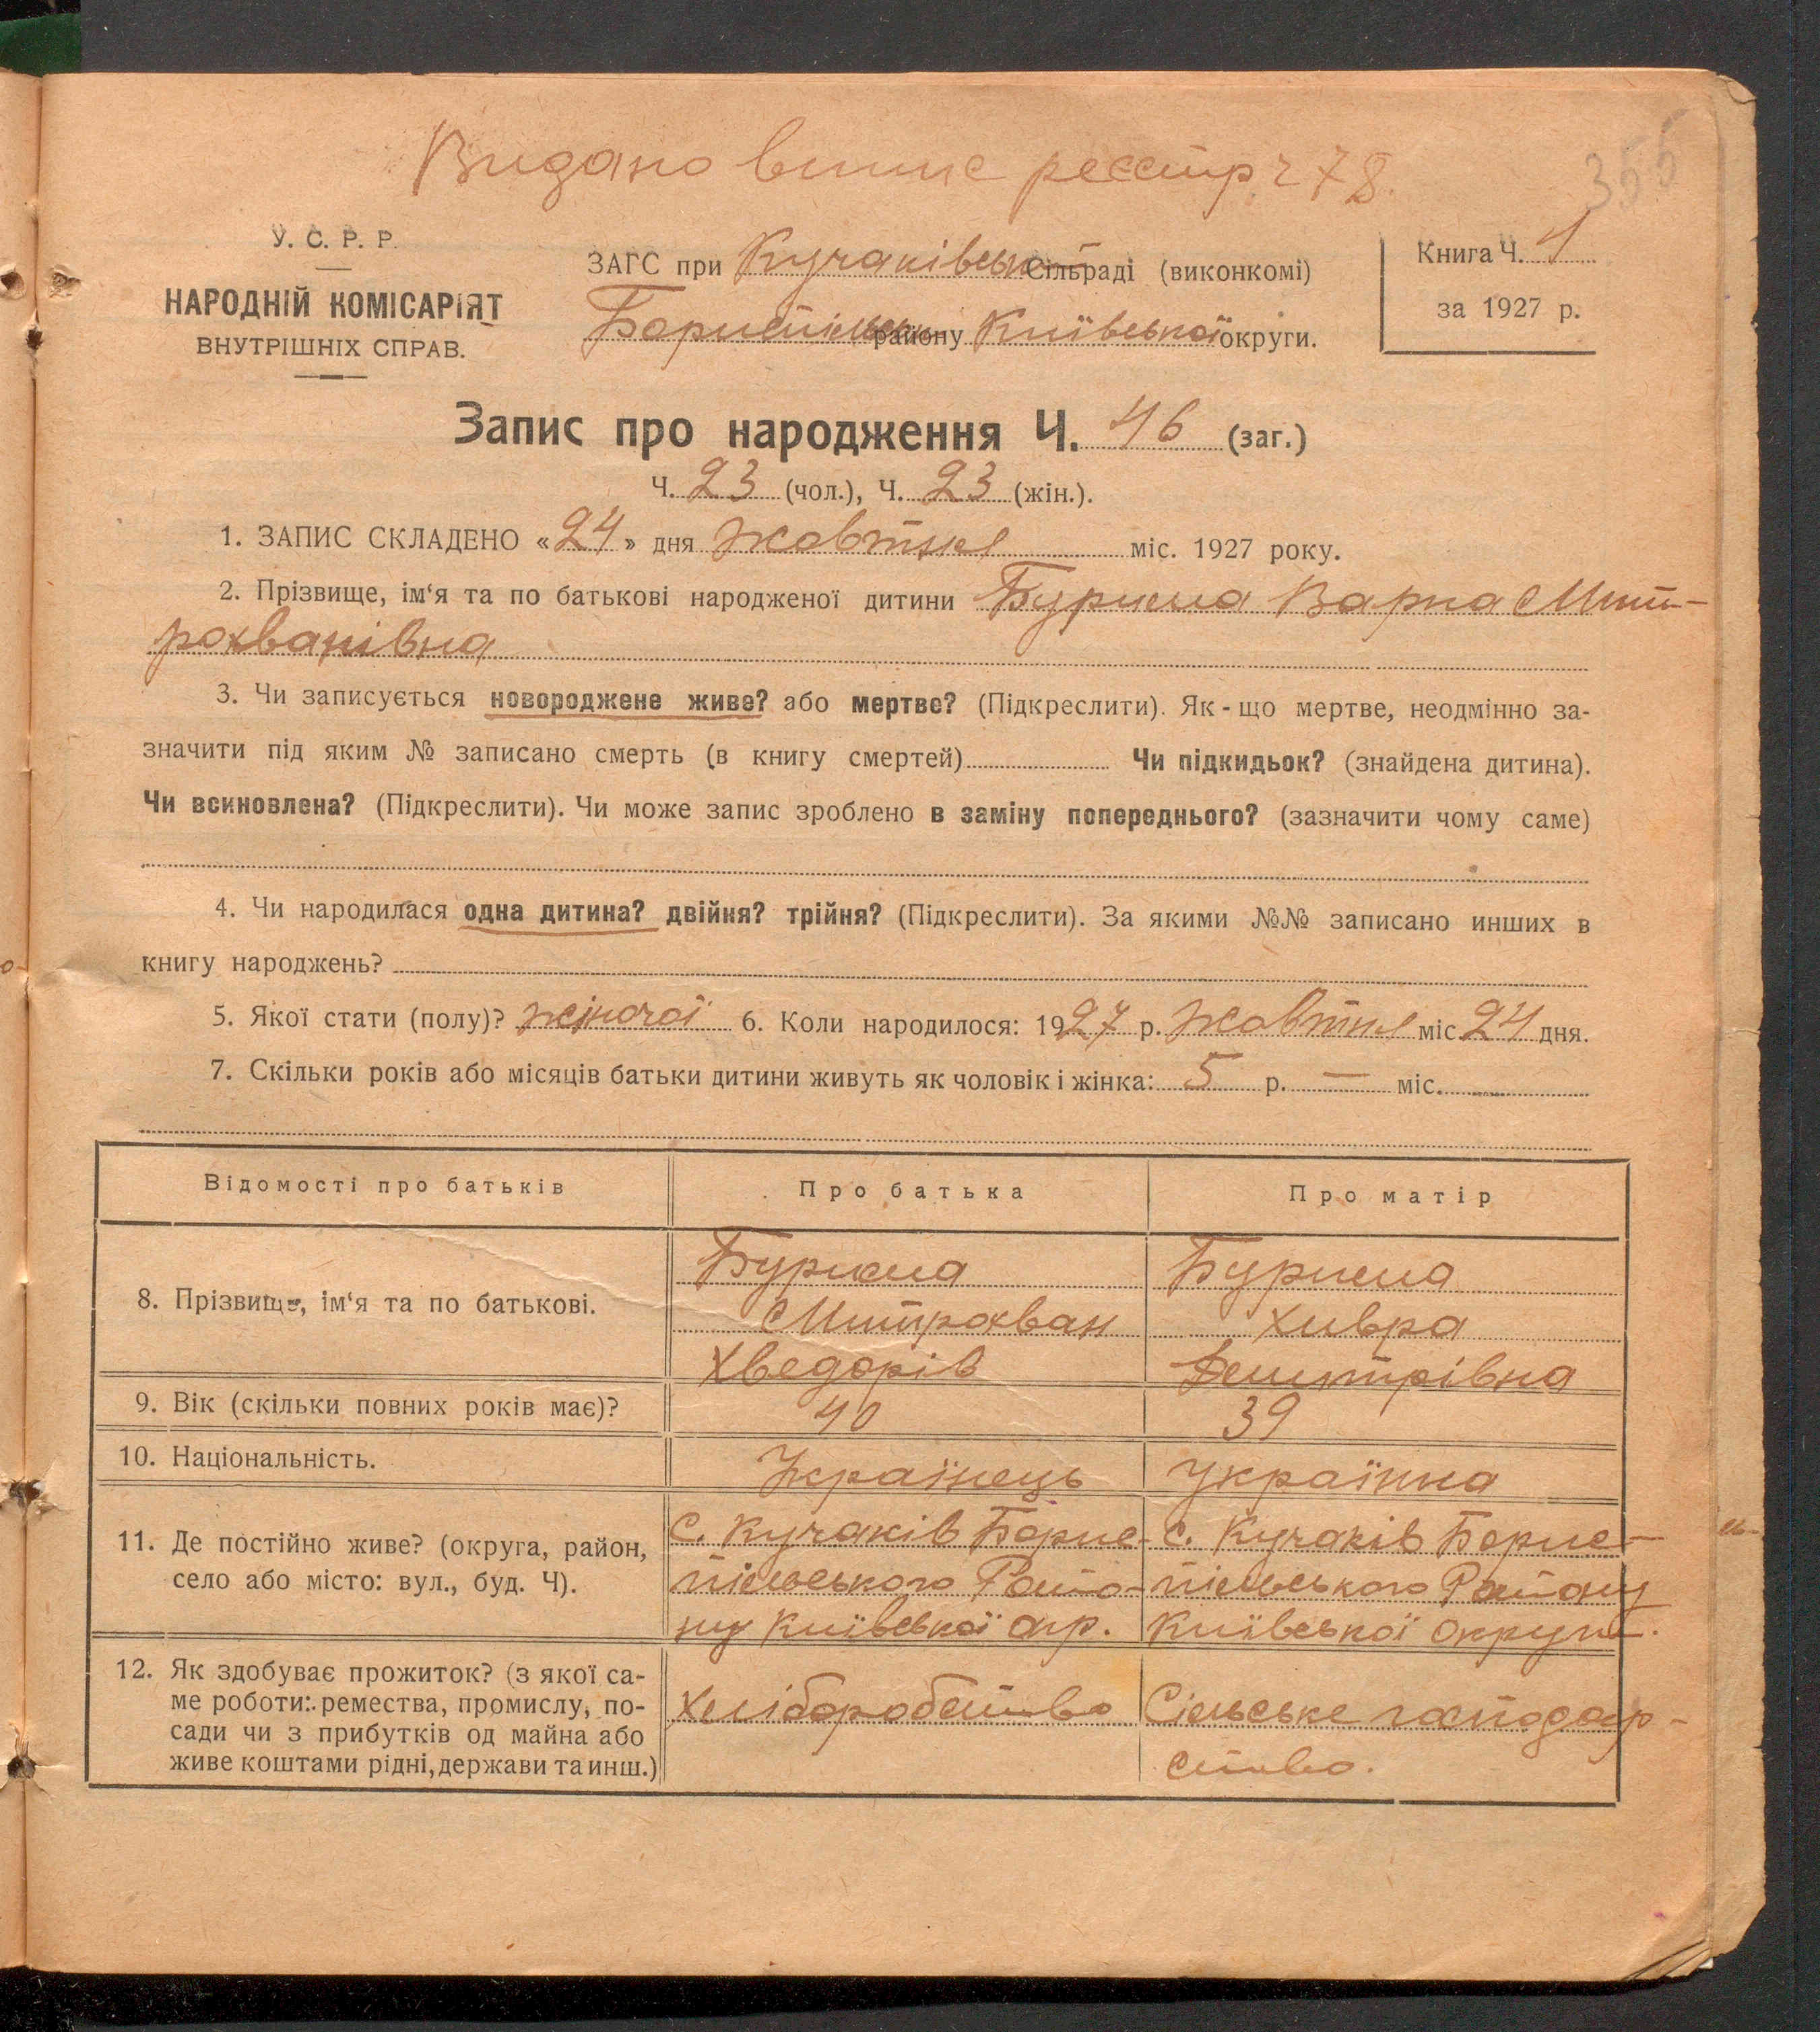 Видано випис реєстр ч 78.
355
У. С. Р. Р.
НАРОДНІЙ КОМІСАРІЯТ
ВНУТРІШНІХ СПРАВ.
ЗАГС при Кучаківській Сільраді (виконкомі)
Бориспільськ району Київської округи.
Книга Ч. 1
за 1927 р.
Запис про народження Ч. 46 (заг.)
Ч. 23 (чол.), Ч. 23 (жін.).
1. ЗАПИС СКЛАДЕНО «24» дня жовтня міс. 1927 року.
2. Прізвище, ім'я та по батькові народженої дитини Бурила Варка Мит-
рохванівна
3. Чи записується новороджене живе? або мертве? (Підкреслити). Як-що мертве, неодмінно за-
значити під яким № записано смерть (в книгу смертей) Чи підкидьок? (знайдена дитина).
Чи всиновлена? (Підкреслити). Чи може запис зроблено в заміну попереднього? (зазначити чому саме)
4. Чи народилася одна дитина? двійня? трійня? (Підкреслити). За якими №№ записано инших в
книгу народжень?
5. Якої стати (полу)? жіночої 6. Коли народилося: 1927 р. жовтня міс. 24 дня.
7. Скільки років або місяців батьки дитини живуть як чоловік і жінка: 5 р. — міс.
Відомості про батьків Про батька Про матір
8. Прізвище, ім'я та по батькові.
Бурила Бурила
Митрохван Хивря
Хведорів Демитрівна
9. Вік (скільки повних років має)? 40 39
10. Національність. Українець Українка
11. Де постійно живе? (округа, район,
село або місто: вул., буд. Ч).
с. Кучаків Борис-
пільського Райо-
ну Київської окр.
с. Кучаків Борис-
пільського Району
Київської округи.
12. Як здобуває прожиток? (з якої са-
ме роботи: ремества, промислу, по-
сади чи з прибутків од майна або
живе коштами рідні, держави та инш.)
Хліборобство
Сільське господар-
ство.